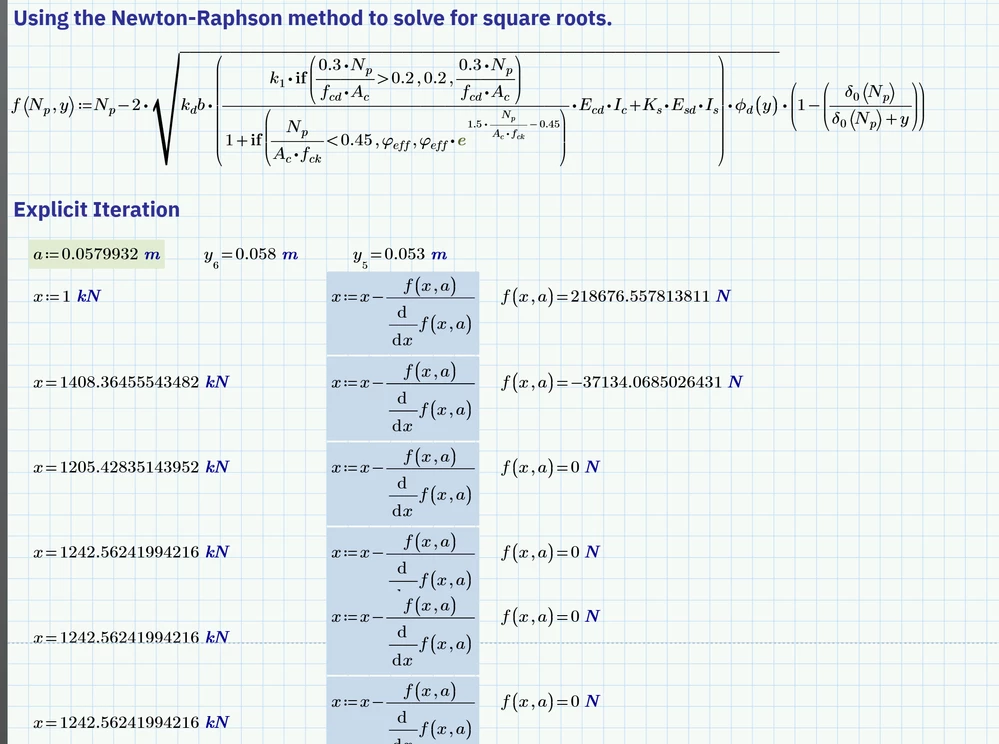 Using the Newton-Raphson method to solve for square roots.
f(N_p, y) := N_p − 2 · √(k_d b · ((k_1 · if((0.3 · N_p)/(f_cd · A_c) > 0.2, 0.2, (0.3 · N_p)/(f_cd · A_c)))/(1 + if(N_p/(A_c · f_ck) < 0.45, φ_eff, φ_eff · e^(1.5 · N_p/(A_c · f_ck) − 0.45))) · E_cd · I_c + K_s · E_sd · I_s) · ϕ_d(y) · (1 − (δ_0(N_p)/(δ_0(N_p) + y)))
Explicit Iteration
a := 0.0579932 m y_6 = 0.058 m y_5 = 0.053 m
x := 1 kN x := x − f(x, a)/(d/dx f(x, a)) f(x, a) = 218676.557813811 N
x = 1408.36455543482 kN x := x − f(x, a)/(d/dx f(x, a)) f(x, a) = −37134.0685026431 N
x = 1205.42835143952 kN x := x − f(x, a)/(d/dx f(x, a)) f(x, a) = 0 N
x = 1242.56241994216 kN x := x − f(x, a)/(d f(x, a)) f(x, a) = 0 N
x = 1242.56241994216 kN x := x − f(x, a)/(d/dx f(x, a)) f(x, a) = 0 N
x = 1242.56241994216 kN x := x − f(x, a)/(d f(x, a)) f(x, a) = 0 N